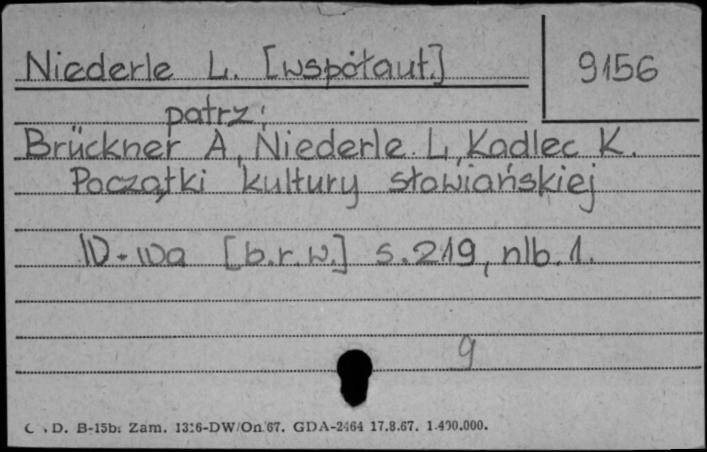 Niederle L. [współaut.]
9156
patrz:
Brückner A, Niederle L, Kadlec K.
Początki kultury słowiańskiej
W-wa [b.r.w.] s.219, nlb.1.
9
D. B-15b. Zam. 1316-DW/On/67. GDA-2464 17.8.67. 1.400.000.